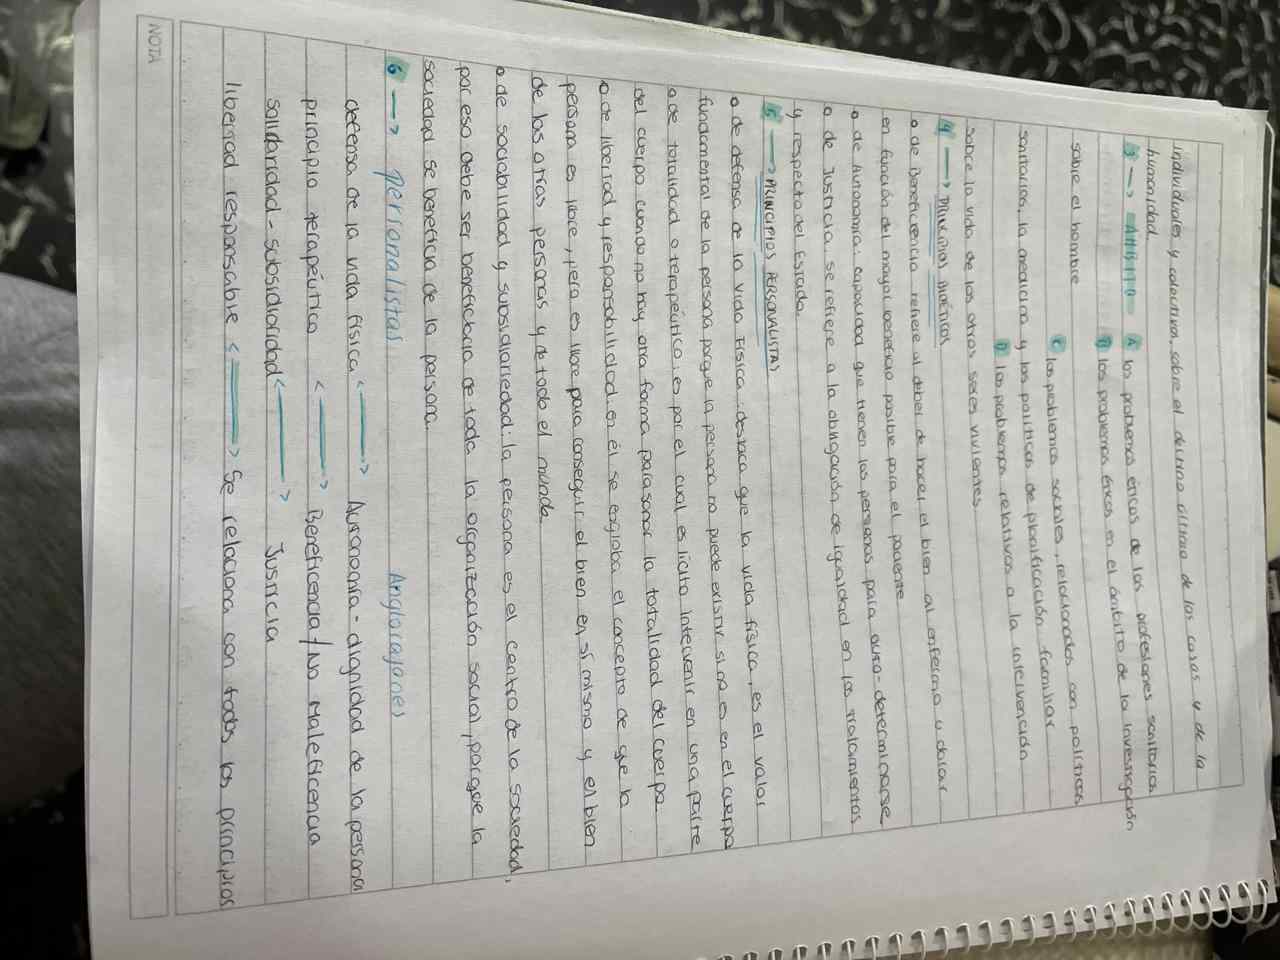 individuales y colectivas, sobre el destino último de las cosas y de la
humanidad.
3 → AMBITO A los problemas éticos de las profesiones sanitarias
B los problemas éticos en el ámbito de la investigación
sobre el hombre
C los problemas sociales, relacionados con políticas
sanitarias, la medicina y las políticas de planificación familiar
D los problemas relativos a la intervención
sobre la vida de los otros seres vivientes
4 → PRINCIPIOS BIOÉTICOS
o de Beneficencia, refiere al deber de hacer el bien al enfermo u dolor
en función del mayor beneficio posible para el paciente
o de Autonomía: capacidad que tienen las personas para auto-determinarse
o de Justicia, se refiere a la obligación de igualdad en los tratamientos
y respecto del Estado.
5 → PRINCIPIOS PERSONALISTAS
o de defensa de la vida Física: destaca que la vida física, es el valor
fundamental de la persona porque la persona no puede existir si no es en el cuerpo
o de totalidad o terapéutico, es por el cual es lícito intervenir en una parte
del cuerpo cuando no hay otra forma para sanar la totalidad del cuerpo.
o de libertad y responsabilidad, en él se engloba el concepto de que la
persona es libre, pero es libre para conseguir el bien en sí mismo y el bien
de las otras personas y de todo el mundo.
o de sociabilidad y subsidiariedad: la persona es el centro de la sociedad,
por eso debe ser beneficiaria de toda la organización social, porque la
sociedad se beneficia de la persona.
6 → personalistas Anglosajones
defensa de la vida física <—> Autonomía - dignidad de la persona
principio terapéutico <—> Beneficencia/No Maleficencia
solidaridad - subsidiaridad <—> Justicia
libertad responsable <—> Se relaciona con todos los principios
NOTA